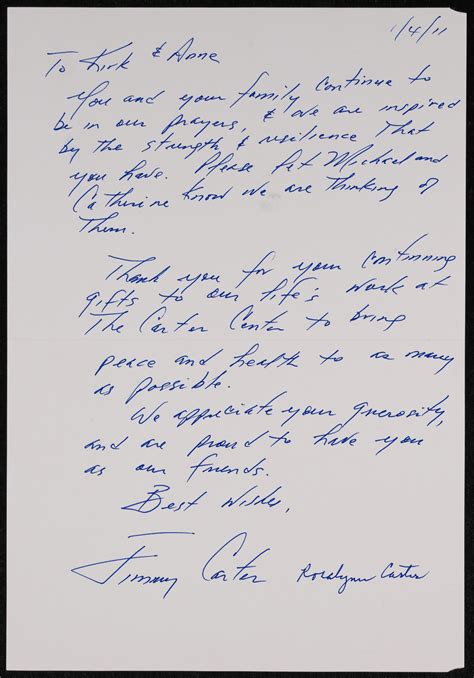 1/4/11
To Kirk & Anne
You and your family continue to
be in our prayers, & we are inspired
by the strength & resilience that
you have. Please let Michael and
Catherine know we are thinking of
them.
Thank you for your continuing
gifts to our life's work at
The Carter Center to bring
peace and health to as many
as possible.
We appreciate your generosity,
and are proud to have you
as our friends.
Best wishes,
Jimmy Carter Rosalynn Carter